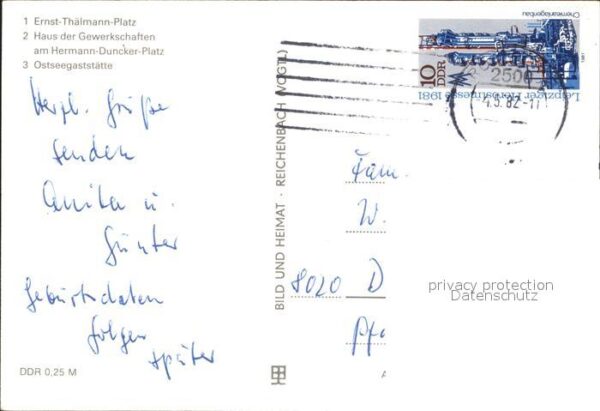 1 Ernst-Thälmann-Platz
2 Haus der Gewerkschaften
am Hermann-Duncker-Platz
3 Ostseegaststätte
Herzl. Grüße
senden
Anita u.
Günter
Geburtsdaten
folgen
später
DDR 0,25 M
BILD UND HEIMAT · REICHENBACH (VOGTL)
Chemieanlagenbau
1981
10
DDR
Leipziger Herbstmesse 1981
2500
4.5.82-17
Fam.
W.
8020 D
privacy protection
Datenschutz
A